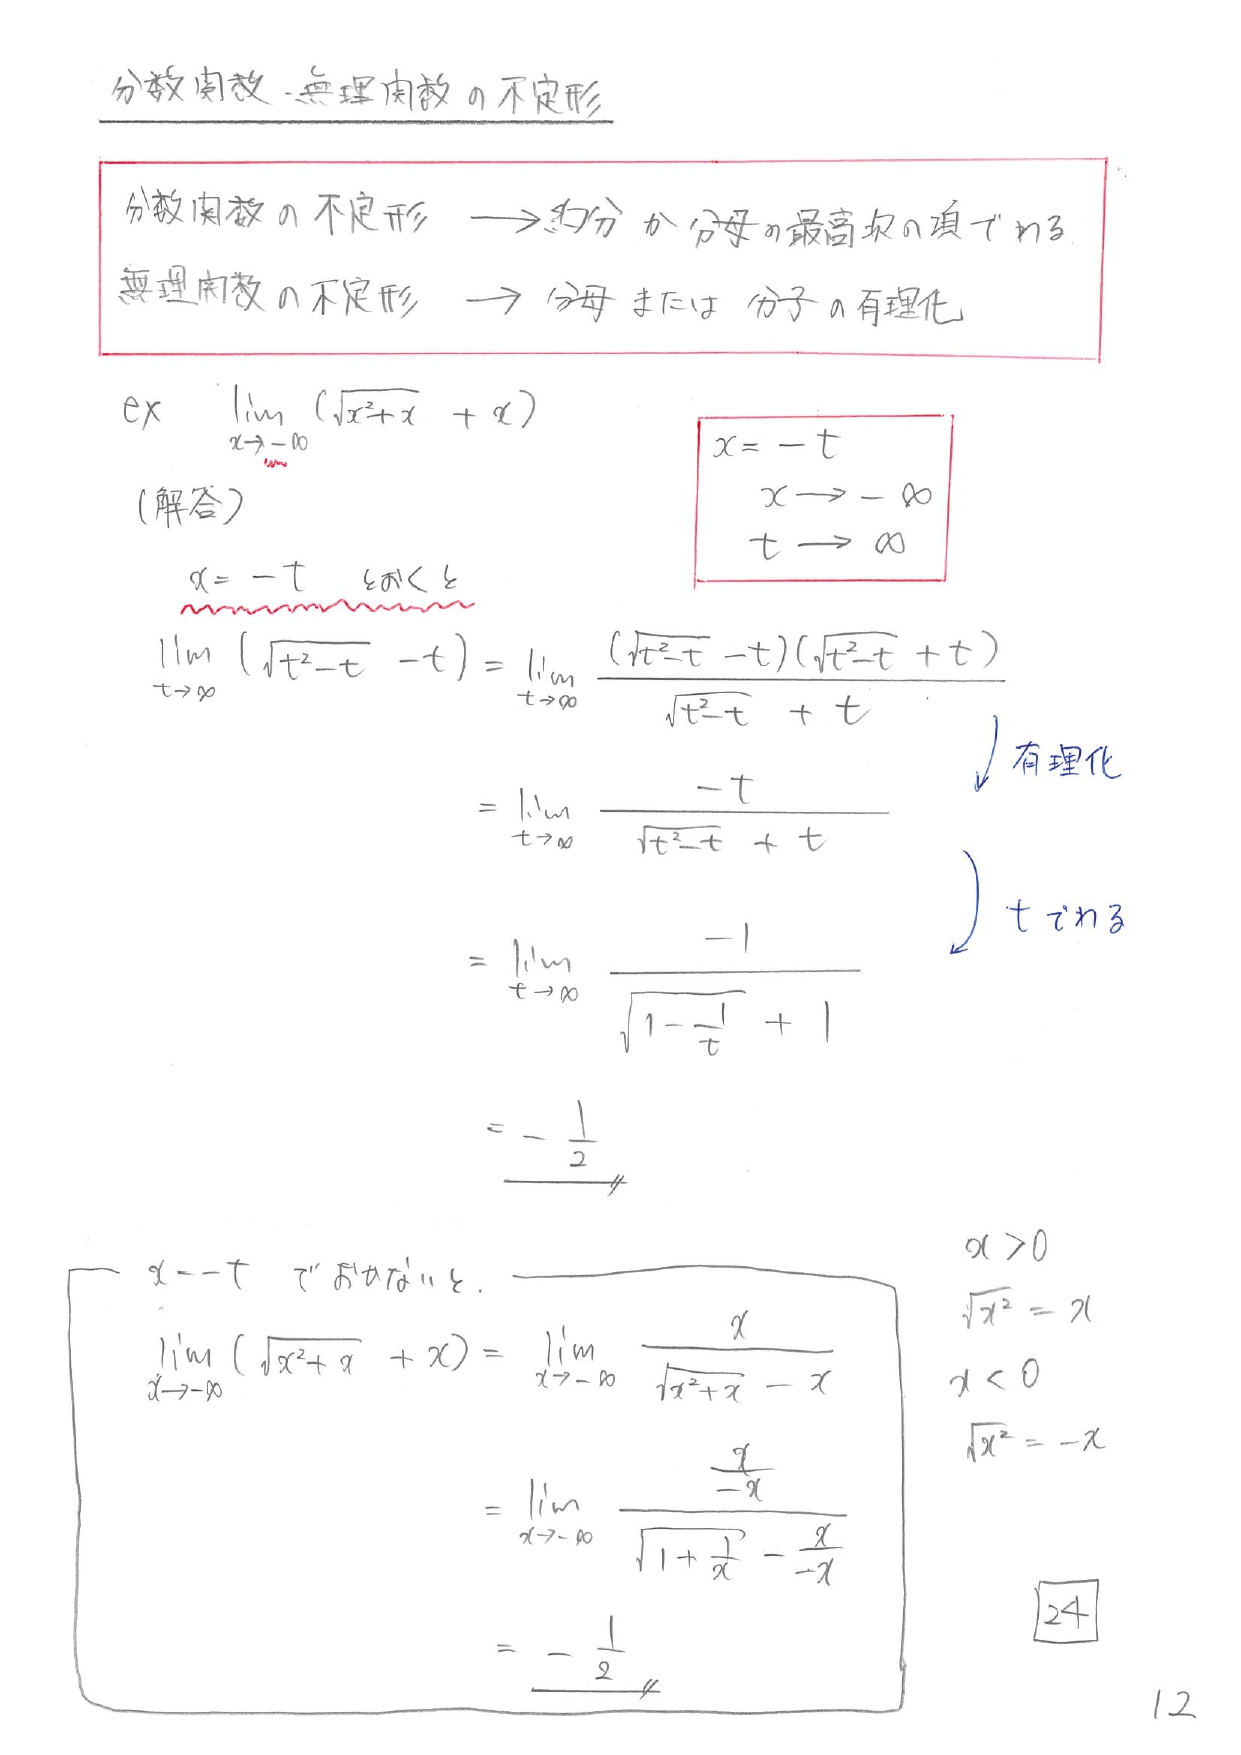 分数関数・無理関数の不定形
分数関数の不定形 → 約分 か 分母の最高次の項でわる
無理関数の不定形 → 分母 または 分子の有理化
ex lim_{x→-∞} (√(x²+x) + x)
x = -t
x → -∞
t → ∞
(解答)
x = -t とおくと
lim_{t→∞} (√(t²-t) - t) = lim_{t→∞} (√(t²-t) - t)(√(t²-t) + t) / (√(t²-t) + t)
有理化
= lim_{t→∞} -t / (√(t²-t) + t)
tでわる
= lim_{t→∞} -1 / (√(1 - 1/t) + 1)
= - 1/2
x = -t でおかないと.
lim_{x→-∞} (√(x²+x) + x) = lim_{x→-∞} x / (√(x²+x) - x)
= lim_{x→-∞} (x/-x) / (√(1 + 1/x) - x/-x)
= - 1/2
x > 0
√x² = x
x < 0
√x² = -x
24
12